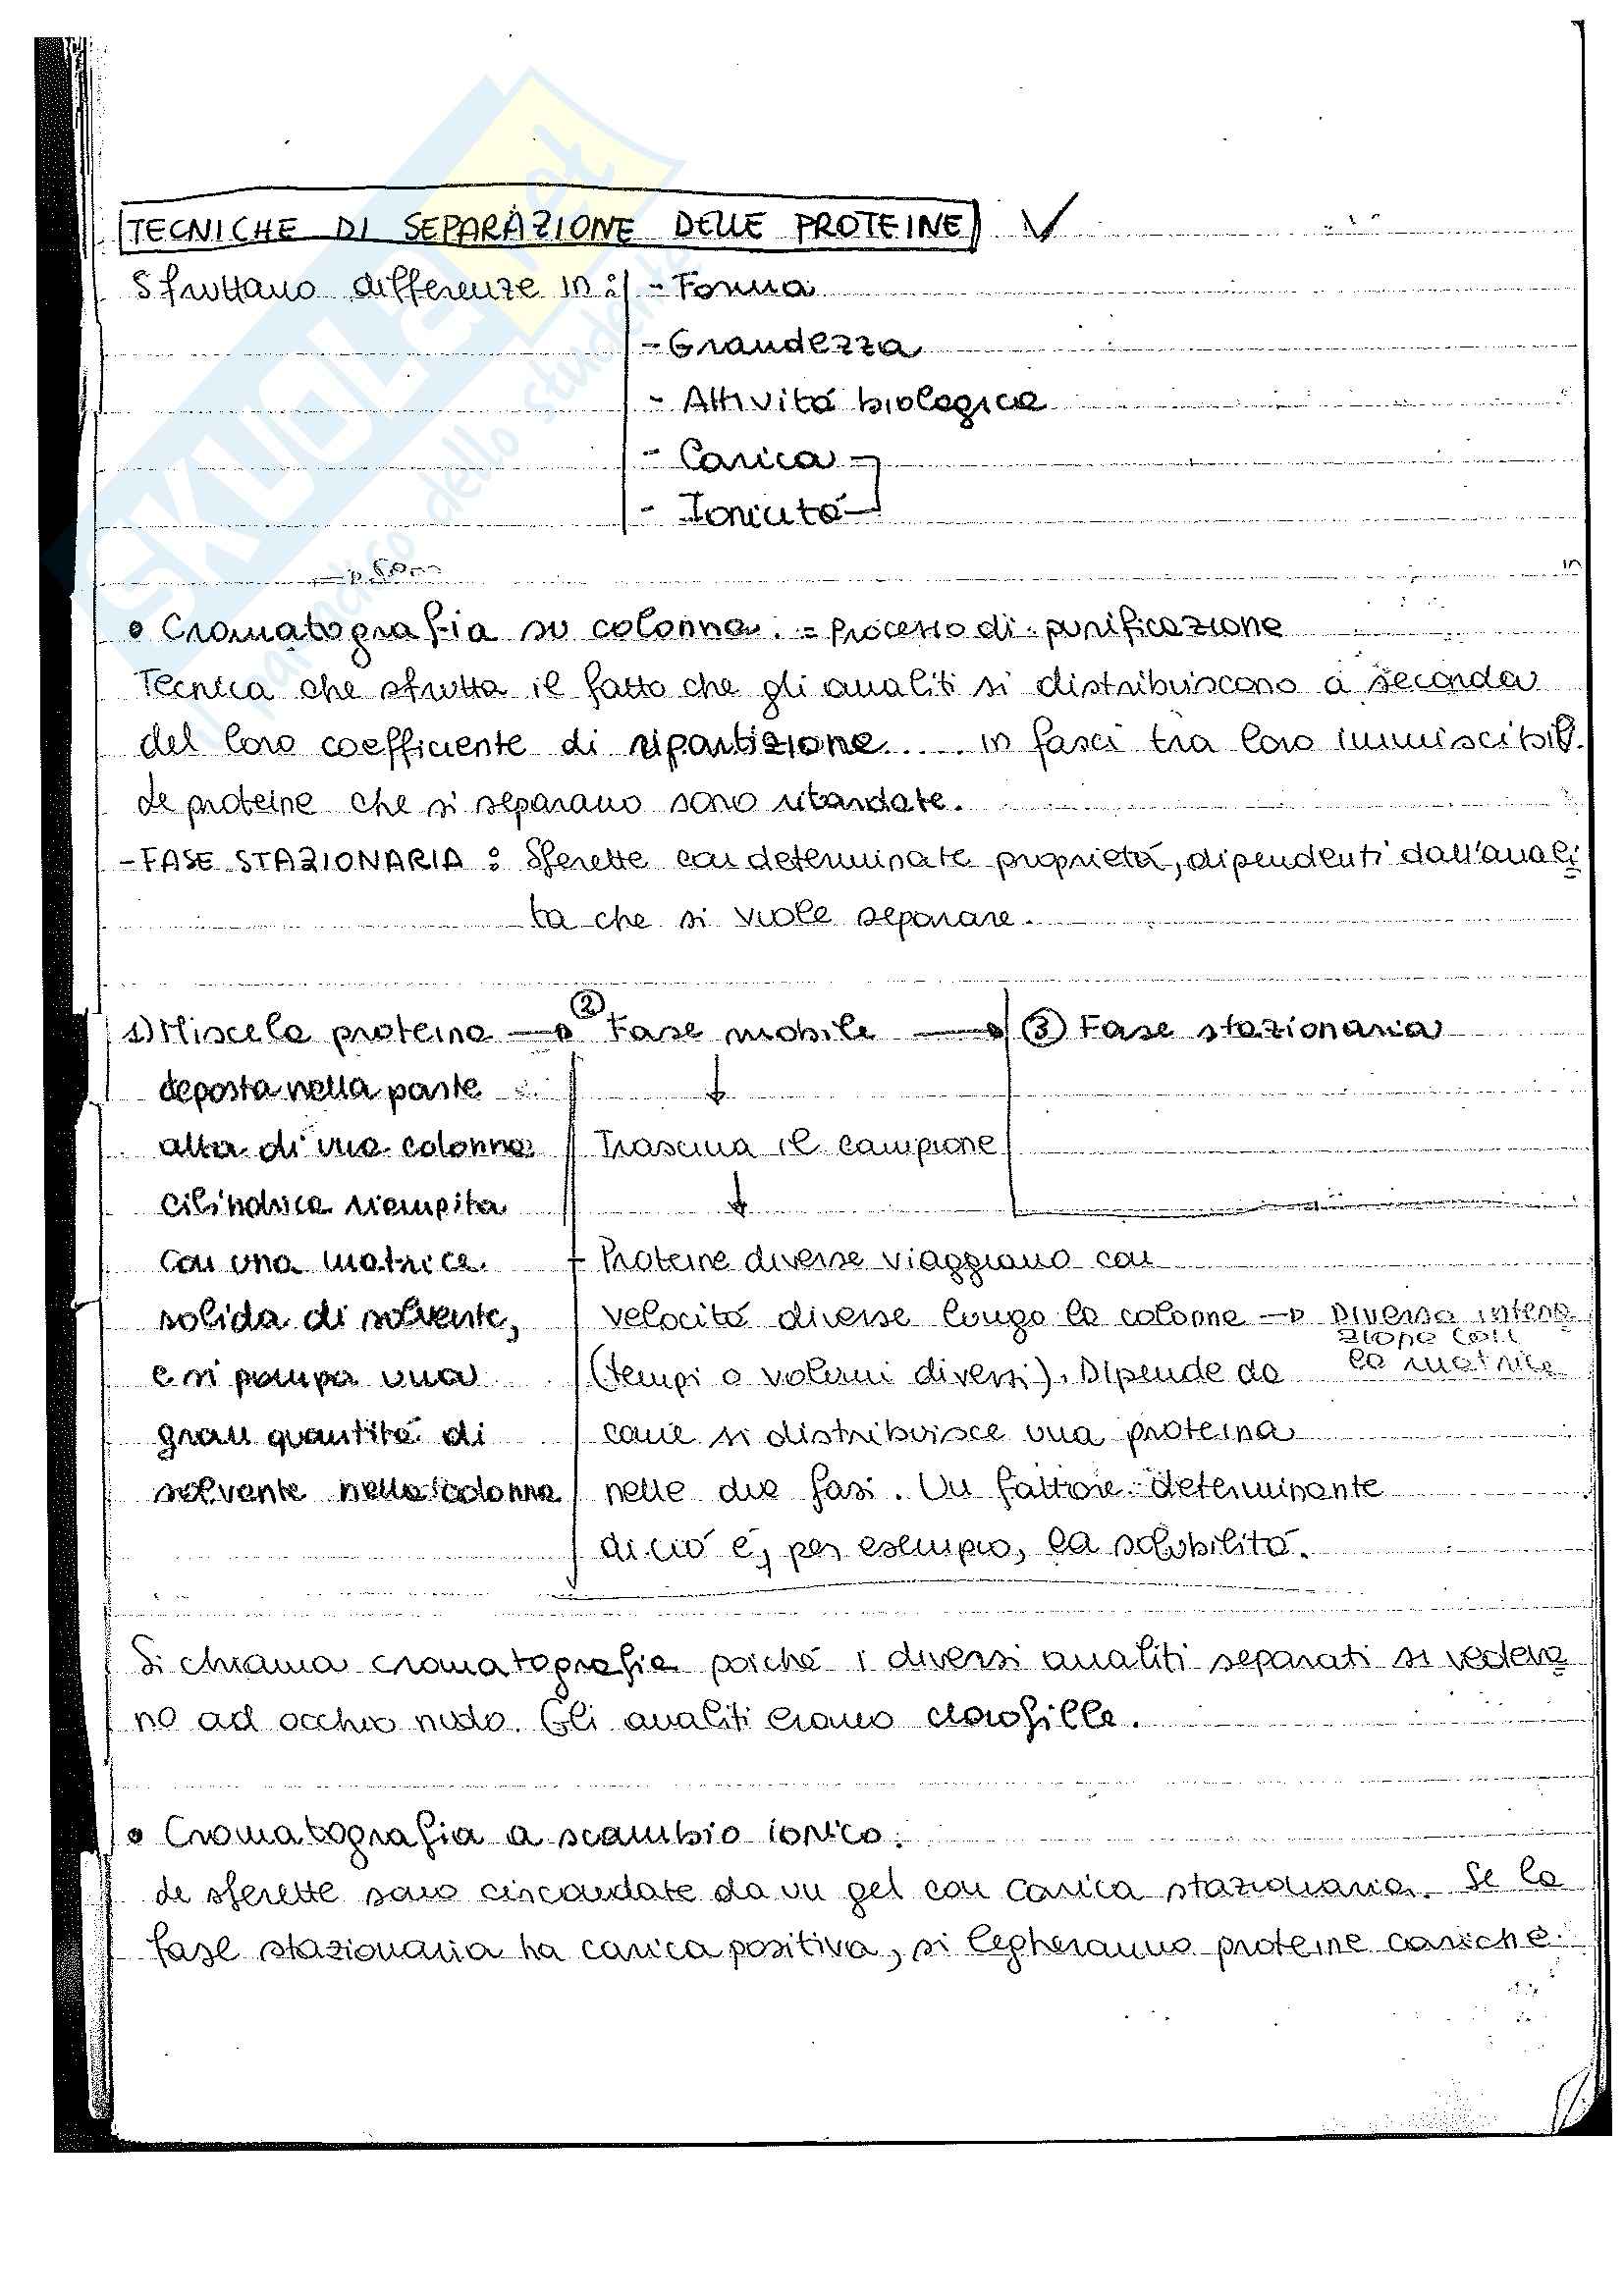 TECNICHE DI SEPARAZIONE DELLE PROTEINE
Sfruttano differenze in: - Forma
- Grandezza
- Attività biologica
- Carica
- Ionicità
in
• Cromatografia su colonna. = Processo di purificazione
Tecnica che sfrutta il fatto che gli analiti si distribuiscono a seconda
del loro coefficiente di ripartizione..... in fasci tra loro immiscibili.
Le proteine che si separano sono ritardate.
- FASE STAZIONARIA : Sferette con determinate proprietà, dipendenti dall'anali
ta che si vuole separare.
1) Miscela proteina → ② Fase mobile → ③ Fase stazionaria
deposta nella parte
alta di una colonna
cilindrica riempita
con una matrice
solida di solvente,
e si pompa una
gran quantità di
solvente nella colonna
Trascina il campione
Proteine diverse viaggiano con
velocità diverse lungo la colonna → Diversa intera
zione con
la matrice
(tempi o volumi diversi). Dipende da
come si distribuisce una proteina
nelle due fasi. Un fattore determinante
di ciò é, per esempio, la solubilità.
Si chiama cromatografia poiché i diversi analiti separati si vedeva
no ad occhio nudo. Gli analiti erano clorofille.
• Cromatografia a scambio ionico.
Le sferette sono circondate da un gel con carica stazionaria. Se la
fase stazionaria ha carica positiva, si legheranno proteine cariche
SKUOLA.net
il paradiso dello studente